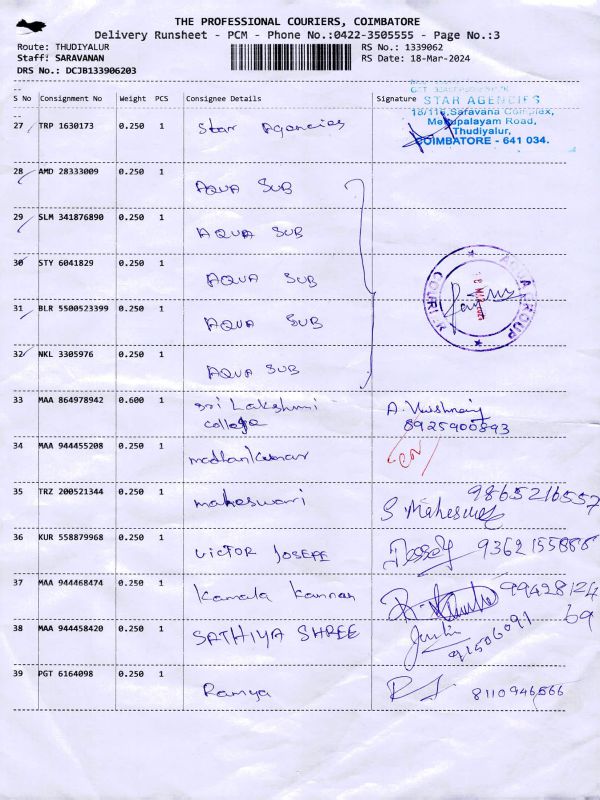 THE PROFESSIONAL COURIERS, COIMBATORE
Delivery Runsheet - PCM - Phone No.:0422-3505555 - Page No.:3
Route: THUDIYALUR RS No.: 1339062
Staff: SARAVANAN RS Date: 18-Mar-2024
DRS No.: DCJB133906203
S No Consignment No Weight PCS Consignee Details Signature
STAR AGENCIES
18/116, Saravana Complex,
Mettupalayam Road,
Thudiyalur,
COIMBATORE - 641 034.
27 TRP 1630173 0.250 1 Star Agencies
28 AMD 28333009 0.250 1 AQUA SUB
29 SLM 341876890 0.250 1 AQUA SUB
30 STY 6041829 0.250 1 AQUA SUB
AQUA GROUP
COURIER
31 BLR 5500523399 0.250 1 AQUA SUB
32 NKL 3305976 0.250 1 AQUA SUB
33 MAA 864978942 0.600 1 Sri Lakshmi
college
34 MAA 944455208 0.250 1 madhan kumar
35 TRZ 200521344 0.250 1 maheswari S Maheswari 9865216557
36 KUR 558879968 0.250 1 VICTOR JOSEPE
37 MAA 944468474 0.250 1 Kamala Kannan 99428124
69
38 MAA 944458420 0.250 1 SATHIYA SHREE 91506091
39 PGT 6164098 0.250 1 Ramya 8110946566